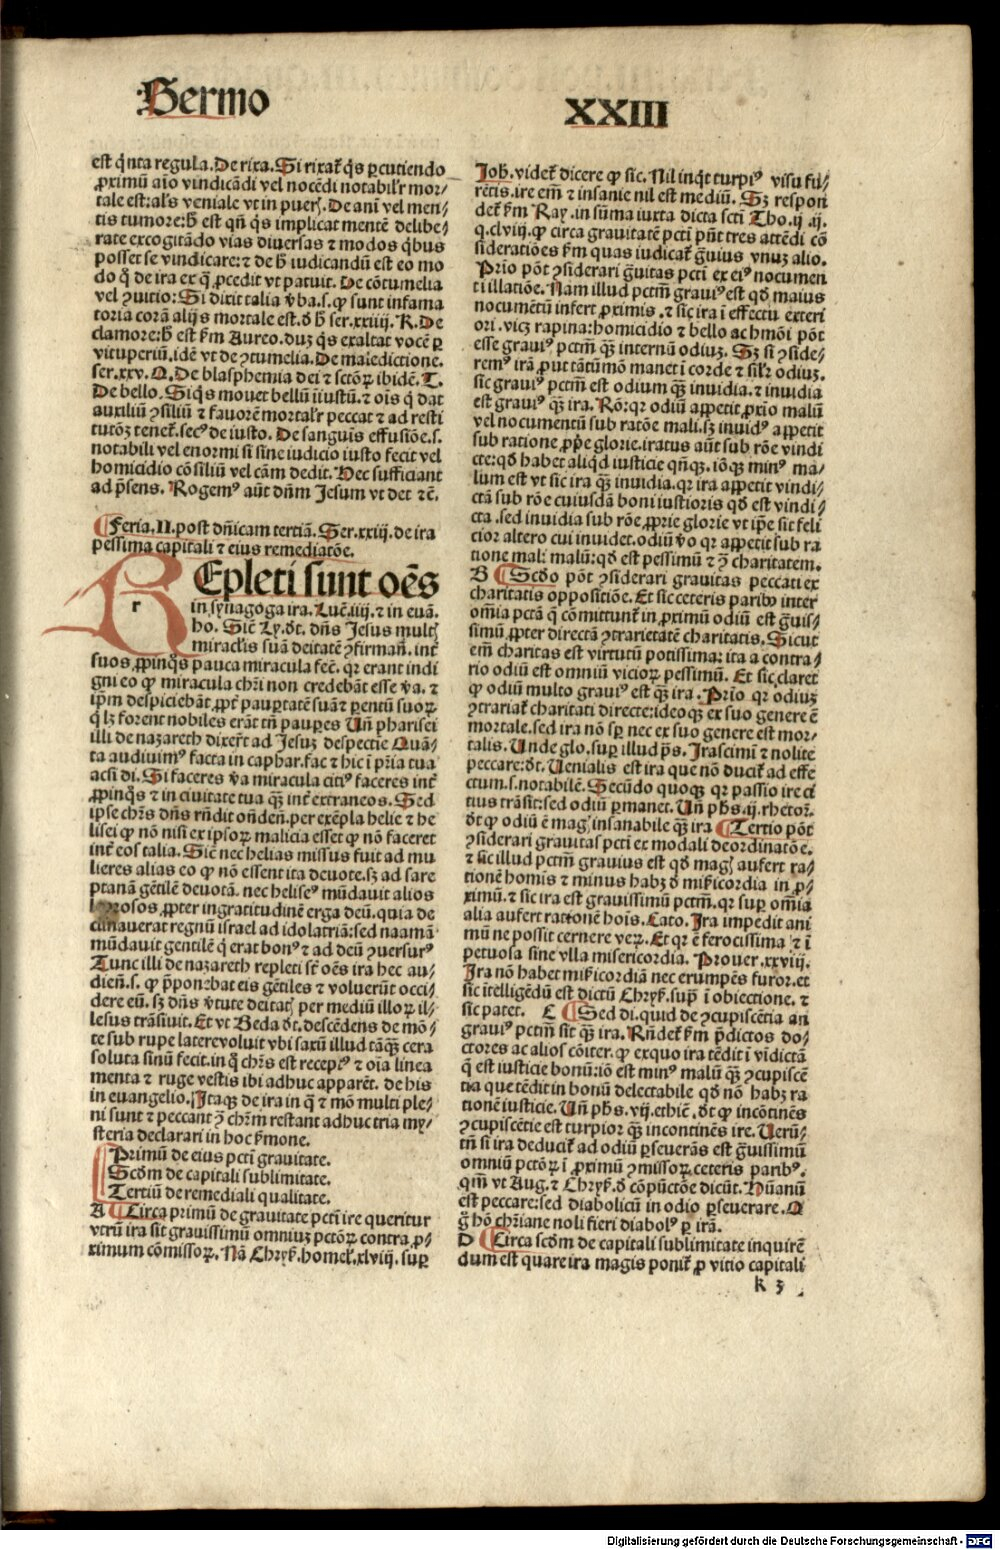 Sermo
XXIII
est q̇nta regula. De rixa. Si rixat᷑ q̇s ꝑcutiendo
ꝓximū aīo vindicādi vel nocēdi notabilr̄ mor/
tale est: al's veniale vt in pueꝭ. De ani vel men/
tis tumore: ħ est qn̄ q̇s implicat mentē delibe/
rate excogitādo vias diuersas ⁊ modos q̇bus
posset se vindicare: ⁊ de ħ iudicandū est eo mo
do q̇ de ira ex q̄ ꝓcedit vt patuit. De cōtumelia
vel ꝯuitio: Si dixit talia v̄ba .s. ꝙ sunt infama
toria corā alijs mortale est. ḋ ħ ser. xxiiij. R. De
clamore: ħ est ẜm Aureo. duꝫ q̇s exaltat vocē ꝑ
vituperiū. idē vt de ꝯtumelia. De maledictione.
ser. xxv. Q. De blasphemia dei ⁊ sctōꝝ ibidē. T.
De bello. Siq̇s mouet bellū iiustū. ⁊ oīs q̇ dat
auxiliū ꝯsiliū ⁊ fauorē mortalr̄ peccat ⁊ ad resti
tutōꝫ tenet᷑. secꝰ de iusto. De sanguis effusiōe .s.
notabili vel enormi si sine iudicio iusto fecit vel
homicidio cōsiliū vel cām dedit. Hec sufficiant
ad p̄sens. Rogemꝰ aūt dn̄m Jesum vt det ⁊c̄.
¶ Feria .II. post dn̄icam tertiā. Ser. xxiij. de ira
pessima capitali ⁊ eius remediatōe.
r
REpleti sunt oēs
in synagoga ira. Luc̄. iiij. ⁊ in euā.
ho. Sic̄ Ly. dt̄. dn̄s Jesus multꝭ
miracl'is suā deitatē ꝯfirman̄. int᷑
suos ꝓpinq̇s pauca miracula fec̄. qꝛ erant indi
gni eo ꝙ miracula chr̄i non credebāt esse v̄a. ⁊
ip̄m despiciebāt ꝓpt᷑ pauꝑtatē suā ⁊ ꝑentū suoꝝ
q̇ lꝫ forent nobiles erāt tn̄ pauꝑes Un̄ pharisei
illi de nazareth dixer̄t ad Jesuꝫ despectie Quā/
ta audiuimꝰ facta in caphar. fac ⁊ hic ī pr̄ia tua
acsi di. Si faceres v̄a miracula citiꝰ faceres int᷑
ꝓpinq̇s ⁊ in ciuitate tua qꝫ̄ int᷑ extraneos. Sed
ipse chr̄s dn̄s rn̄dit on̄den̄. per exēpla helie ⁊ he
lisei ꝙ nō nisi ex ipsoꝝ malicia esset ꝙ nō faceret
int᷑ eos talia. Sic̄ nec helias missus fuit ad mu
lieres alias eo ꝙ nō essent ita deuote. sꝫ ad sare
ptanā gētilē deuotā. nec heliseꝰ mūdauit alios
leprosos ꝓpter ingratitudinē erga deū. quia de
clinauerat regnū israel ad idolatriā: sed naamā
mūdauit gentilē q̇ erat bonꝰ ⁊ ad deū ꝯuersurꝰ
Tunc illi de nazareth repleti st̄ oēs ira hec au/
dien̄. s. ꝙ p̄ponebat eis gētiles ⁊ voluerūt occi/
dere eū. sꝫ dn̄s v̄tute deitatꝭ per mediū illoꝝ il/
lesus trāsiuit. Et vt Beda dt̄. descēdens de mō/
te sub rupe latere voluit vbi saxū illud tāqꝫ̄ cera
soluta sinū fecit. in q̄ chr̄s est receptꝰ ⁊ oīa linea
menta ⁊ ruge vestis ibi adhuc apparēt. de his
in euangelio. Itaqꝫ de ira in q̄ ⁊ mō multi ple/
ni sunt ⁊ peccant ꝯ chr̄m restant adhuc tria my/
steria declarari in hoc ẜmone.
Primū de eius pctī grauitate.
Scd̄m de capitali sublimitate.
Tertiū de remediali qualitate.
A ¶ Circa primū de grauitate pctī ire queritur
vtrū ira sit grauissimū omniuꝫ pctōꝝ contra ꝓ/
ximum cōmissoꝝ. Nā Chryẜ. homel'. xlviij. suꝑ
Joh̄. videt᷑ dicere ꝙ sic. Nil inq̇t turpiꝰ visu fu/
rētis. ire em̄ ⁊ insanie nil est mediū. Sꝫ respon
det᷑ ẜm Ray. in sūma iuxta dicta sctī Tho. ij .ij.
q. clviij. ꝙ circa grauitatē pctī pn̄t tres attēdi cō
sideratiōes ẜm quas iudicat᷑ ḡuius vnuꝫ alio.
Prīo pōt ꝯsiderari ḡuitas pctī ex eiꝰ nocumen
ti illatiōe. Nam illud pctm̄ grauiꝰ est qd̄ maius
nocumētū infert ꝓximis. ⁊ sic ira ī effectu exteri
ori. vicꝫ rapina: homicidio ⁊ bello ac hmōi pōt
esse grauiꝰ pctm̄ qꝫ̄ internū odiuꝫ. Sꝫ si ꝯside/
remꝰ irā ꝓut tātūmō manet ī corde ⁊ sil'r odiuꝫ.
sic grauiꝰ pctm̄ est odium qꝫ̄ inuidia. ⁊ inuidia
est grauiꝰ qꝫ̄ ira. Rō: qꝛ odiū appetit ꝓxīo malū
vel nocumentū sub ratōe mali. sꝫ inuidꝰ appetit
sub ratione ꝓp̄e glorie. iratus aūt sub rōe vindi
cte: qd̄ habet aliq̇d iusticie qn̄qꝫ. iōqꝫ minꝰ ma/
lum est vt sic ira qꝫ̄ inuidia. qꝛ ira appetit vindi/
ctā sub rōe cuiusdā boni iustioris qd̄ est vindi/
cta. sed inuidia sub rōe ꝓprie glorie vt ip̄e sit feli
cior altero cui inuidet. odiū v̄o qꝛ appetit sub ra
tione mali malū: qd̄ est pessimū ⁊ ꝯ charitatem.
B ¶ Scd̄o pōt ꝯsiderari grauitas peccati ex
charitatis oppositiōe. Et sic ceteris paribꝰ inter
om̄ia pctā q̄ cōmittunt᷑ in ꝓximū odiū est ḡuis/
simū ꝓpter directā ꝯtrarietatē charitatis. Sicut
em̄ charitas est virtutū potissima: ita a contra/
rio odiū est omniū vicioꝝ pessimū. Et sic claret
ꝙ odiū multo grauiꝰ est qꝫ̄ ira. Prīo qꝛ odiuꝫ
ꝯtrariat᷑ charitati directe: ideoqꝫ ex suo genere ē
mortale. sed ira nō sꝑ nec ex suo genere est mor/
talis. Unde glo. suꝑ illud p̄s. Irascimī ⁊ nolite
peccare: dt̄. Uenialis est ira que nō ducit᷑ ad effe
ctum .s. notabilē. Secūdo quoqꝫ qꝛ passio ire ci
tius trāsit: sed odiū ꝑmanet. Un̄ phs̄. ij. rhetor.
dt̄ ꝙ odiū ē magꝭ insanabile qꝫ̄ ira ¶ Tertio pōt
ꝯsiderari grauitas pctī ex modali deordinatōe.
⁊ sic illud pctm̄ grauius est qd̄ magꝭ aufert ra/
tionē homis ⁊ minus habꝫ ḋ mīẜicordia in ꝓ/
ximū. ⁊ sic ira est grauissimū pctm̄. qꝛ suꝑ om̄ia
alia aufert rationē hoīs. Cato. Ira impedit ani
mū ne possit cernere veꝝ. Et qꝛ ē ferocissima ⁊ ī
petuosa sine vlla misericordia. Prouer. xxviij.
Ira nō habet mīẜicordiā nec erumpēs furor. et
sic ītelligēdū est dictū Chryẜ. sup̄ ī obiectione. ⁊
sic patet. C ¶ Sed di. quid de ꝯcupiscētia an
grauiꝰ pctm̄ sit qꝫ̄ ira. Rn̄det᷑ ẜm p̄dictos do/
ctores ac alios cōiter. ꝙ exquo ira tēdit ī vīdictā
q̄ est iusticie bonū: iō est minꝰ malū qꝫ̄ ꝯcupiscē
tia que tēdit in bonū delectabile qd̄ nō habꝫ ra
tionē iusticie. Un̄ phs̄. vij. ethic̄. dt̄ ꝙ incōtinēs
ꝯcupiscētie est turpior qꝫ̄ incontinēs ire. Uerū/
tn̄ si ira deducit᷑ ad odiū ꝑseuerās est ḡuissimū
omniū pctōꝝ ī ꝓximū ꝯmissoꝝ ceteris paribꝰ.
qm̄ vt Aug. ⁊ Chryẜ. ḋ cōpūctōe dicūt. Hūanū
est peccare: sed diabolicū in odio ꝑseuerare. Q
ḡ hō chr̄iane noli fieri diabolꝰ ꝑ irā.
D ¶ Circa scd̄m de capitali sublimitate inquirē
dum est quare ira magis ponit᷑ ꝓ vitio capitali
k 3
Digitalisierung gefördert durch die Deutsche Forschungsgemeinschaft - DFG